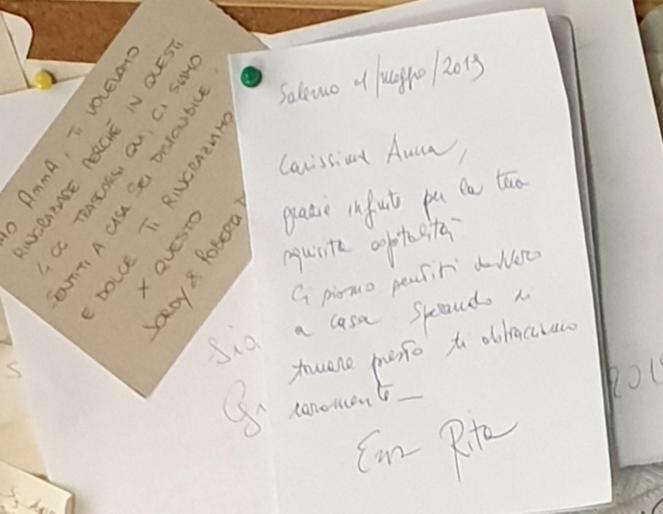 ANNA, TI VOLEVAMO
RINGRAZIARE PERCHÈ IN QUESTI
4 GG TRASCORSI QUI, CI SIAMO
SENTITI A CASA SEI DISPONIBILE
E DOLCE TI RINGRAZIAMO
X QUESTO
JORDY & ROBERTA
Salerno 1/Maggio/2019
Carissima Anna,
grazie infinite per la tua
squisita ospitalità
Ci siamo sentiti davvero
a casa sperando di
tornare presto ti abbracciamo
caramente_
Rita
Sia
201